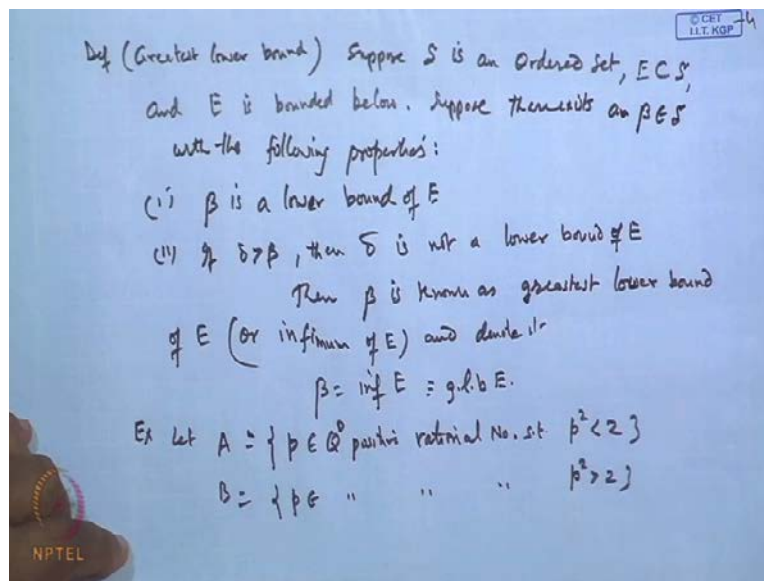 © CET
I.I.T. KGP
-4
Def (Greatest lower bound) Suppose S is an Ordered set, E ⊂ S,
and E is bounded below. Suppose there exists an β ∈ S
with the following properties:
(i) β is a lower bound of E
(ii) If δ > β, then δ is not a lower bound of E
Then β is known as greatest lower bound
of E (or infimum of E) and denote it
β = inf E ≡ g.l.b E.
Ex Let A = { p ∈ Q positive rational No. s.t. p² < 2 }
B = { p ∈ " " " p² > 2 }
NPTEL